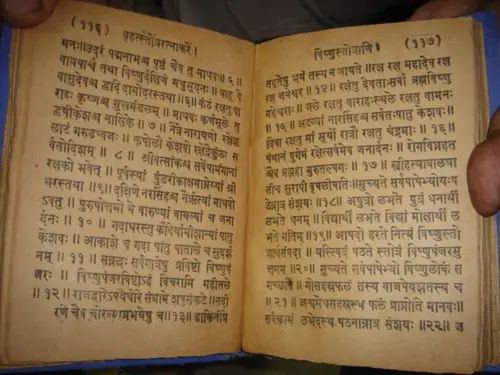 (११६)
बृहत्स्तोत्ररत्नाकरे।
मनः॥उदरं पद्मनाभश्च पृष्ठं चैव तु माधवः॥६॥
वामपार्श्वं तथा विष्णुर्दक्षिणं मधुसूदनः॥ बाहू वै
वासुदेवश्च हृदि दामोदरस्तथा॥७॥ कंठं रक्षतु वा
राहः कृष्णश्च मुखमंडलम्॥ माधवः कर्णमूले तु
हृषीकेशश्च नासिके॥ ७॥ नेत्रे नारायणो रक्षेल्ल
लाटं गरुडध्वजः॥ कपोलौ केशवो रक्षेद्वैकुंठः स
र्वतोदिशम्॥ ८॥ श्रीवत्सांकश्च सर्वेषामंगानां
रक्षको भवेत्॥ पूर्वस्यां पुंडरीकाक्षआग्नेय्यां श्री
धरस्तथा॥९॥ दक्षिणे नरसिंहश्च नैर्ऋत्यां माधवो
ऽवतु॥ पुरुषोत्तमो मे वारुण्यां वायव्यां च जना
र्दनः॥ १०॥ गदाधरस्तु कौबेर्यामीशान्यां पातु
केशवः॥ आकाशे च गदा पातु पाताले च सुदर्श
नम्॥ ११॥ सन्नद्धः सर्वगात्रेषु प्रविष्टो विष्णुपं
जरः॥ विष्णुपंजरविष्टोऽहं विचरामि महीतले
॥१२॥ राजद्वारेऽपथेघोरे संग्रामे शत्रुसंकटे॥नदी
रणे चैव चोरव्याघ्रभयेषु च॥१३॥ डाकिनीप्रे
विष्णुस्तोत्राणि।
(११७)
तभूतेषु भयं तस्य न जायते॥रक्ष रक्ष महादेव रक्ष
रक्ष जनेश्वर॥ १४॥ रक्षंतु देवताःसर्वा ब्रह्मविष्णु
महेश्वराः॥ जले रक्षतु वाराहःस्थले रक्षतु वामनः
॥१५॥ अटव्यां नारसिंहश्च सर्वतःपातु केशवः॥
दिवा रक्षतु मां सूर्यो रात्रौ रक्षतु चंद्रमाः॥ १६॥
पंथानं दुर्गमं रक्षेत्सर्वमेव जनार्दनः॥ रोगविघ्नहत
श्चैव ब्रह्महा गुरुतल्पगः॥ १७॥ स्त्रीहंत्याबालघा
तीच सुरापी वृषलीपतिः॥मुच्यते सर्वपापेभ्योयःप
ठेन्नात्र संशयः॥१८॥ अपुत्रो लभते पुत्रं धनार्थी
लभते धनम्॥ विद्यार्थी लभते विद्यां मोक्षार्थी ल
भते गतिम्॥१९॥ आपदो हरते नित्यं विष्णुस्तो
त्रार्थसंपदा॥ यस्त्विदं पठते स्तोत्रं विष्णुपंजरमु
त्तमम्॥२०॥ मुच्यते सर्वपापेभ्यो विष्णुलोकं स
गच्छति॥ गोसहस्रफलं तस्य वाजपेयशतस्य च
॥२१॥ अश्वमेधसहस्रस्य फलं प्राप्नोति मानवः॥
सर्वकामं लभेदस्य पठनान्नात्र संशयः॥२२॥ ज